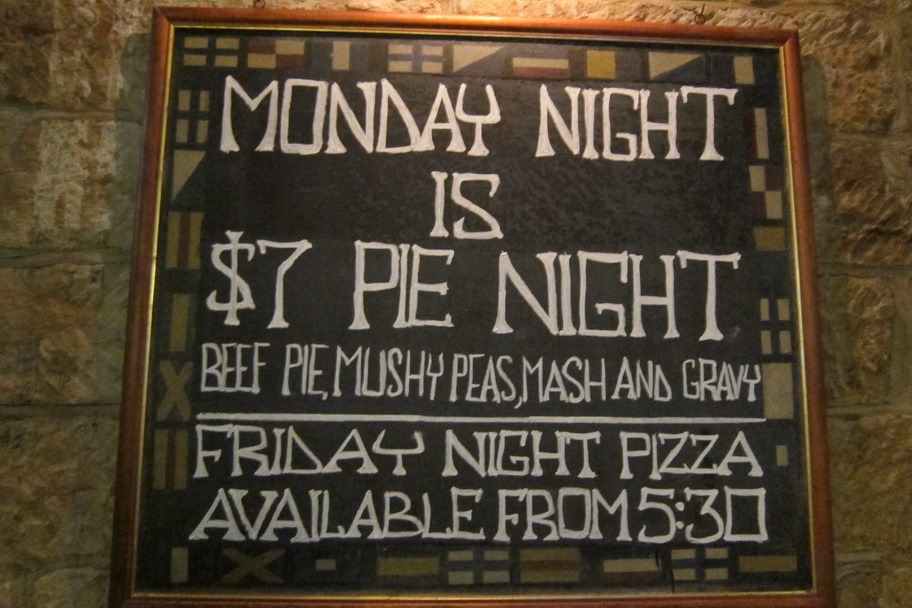 MONDAY NIGHT
IS
$7 PIE NIGHT
BEEF PIE, MUSHY PEAS, MASH AND GRAVY
FRIDAY NIGHT PIZZA
AVAILABLE FROM 5:30